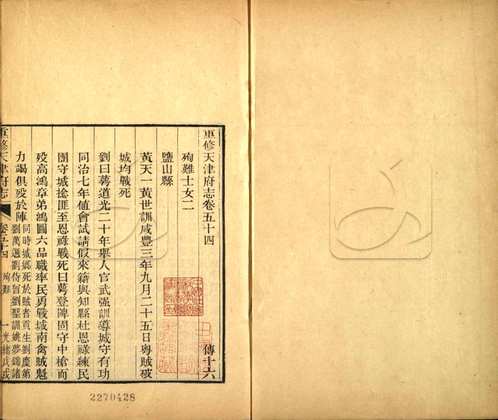 重修天津府志卷五十四
傳十六
殉難士女二
鹽山縣
黃天一黃世訓咸豐三年九月二十五日粵賊破
城均戰死
劉曰蕚道光二十年舉人官武強訓導城守有功
同治七年値會試請假來籍與知縣杜恩祿練民
團守城捻匪至恩祿戰死曰蕚登陴固守中槍而
歿高鴻章弟鴻圖六品職率民勇戰城南禽賊魁
力竭俱歿於陣
重修天津府志
卷五十四
殉難
一
2270428